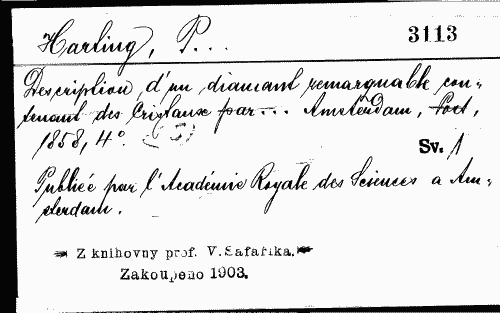 Harting, P...
3113
Description d'un diamant remarquable con-
tenant des Cristaux par... Amsterdam, Post,
1858, 4°.
Sv. 1
Publiée par l'Académie Royale des Sciences a Am-
sterdam.
Z knihovny prof. V. Šafaříka.
Zakoupeno 1903.